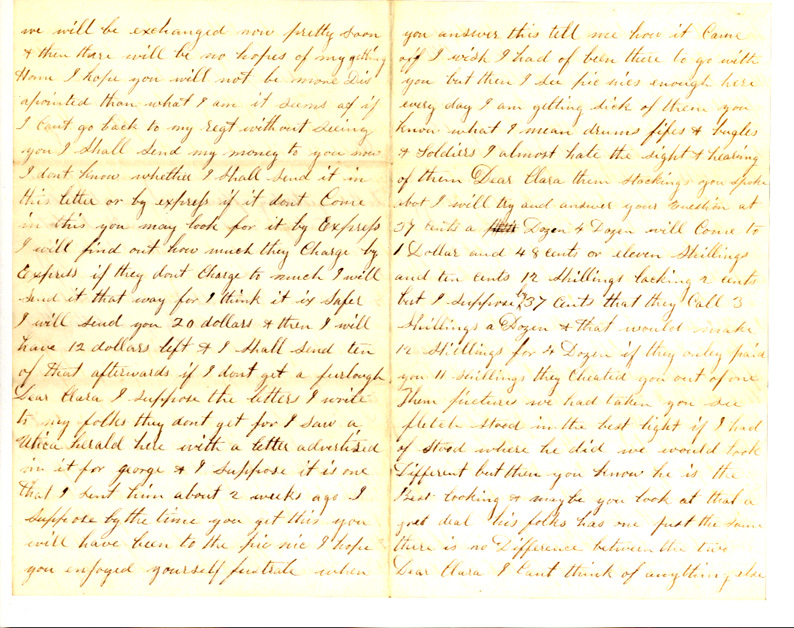 we will be exchanged now pretty soon
& then there will be no hopes of my getting
Home I hope you will not be more Dis
apointed than what I am it seems as if
I Cant go back to my regt without Seeing
you I Shall send my money to you now
I dont know whether I Shall send it in
this letter or by express if it dont Come
in this you may look for it by Express
I will find out how much they Charge by
Express if they dont Charge to much I will
send it that way for I think it is Safer
I will send you 20 dollars & then I will
have 12 dollars left & I Shall send ten
of that afterwards if I dont get a furlough
Dear Clara I suppose the letters I write
to my folks they dont get for I saw a
Utica herald here with a letter advertised
in it for george & I Suppose it is one
that I sent him about 2 weeks ago I
suppose by the time you get this you
will have been to the pic nic I hope
you enjoyed yourself when
you answer this tell me how it Came
off I wish I had of been there to go with
you but then I see pic nics enough here
every day I am getting sick of them you
know what I mean drums fifes & bugles
& Soldiers I almost hate the sight & hearing
of them Dear Clara them stockings you spoke
abot I will try and answer your question at
37 cents a Dozen 4 Dozen will Come to
1 Dollar and 48 cents or eleven Shillings
and ten cents 12 Shillings lacking 2 cents
but I suppose by 37 Cents that they Call 3
Shillings a Dozen & that would make
12 Shillings for 4 Dozen if they only paid
you 11 shillings they Cheated you out of one
Them pictures we had taken you see
fletch stood in the best light if I had
of stood where he did we would look
Different but then you know he is the
Best looking & maybe you look at that a
deal his folks has one just the same
there is no Difference between the two
Dear Clara I Cant think of anything else